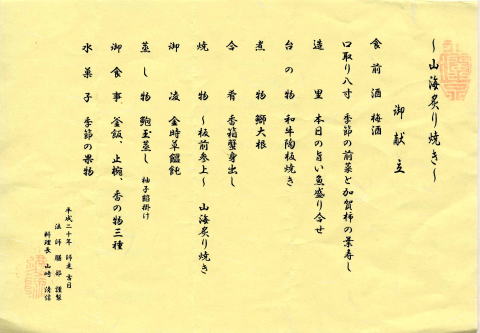 ～山海炙り焼き～
御献立
食前酒 梅酒
口取り八寸 季節の前菜と加賀柿の葉寿し
造里 本日の旨い魚盛り合せ
台の物 和牛陶板焼き
煮物 鰤大根
合肴 香箱蟹身出し
焼物 ～板前参上～ 山海炙り焼き
御凌 金時草饂飩
蒸し物 鮑玉蒸し 柚子餡掛け
御食事 釜飯、止椀、香の物三種
水菓子 季節の果物
平成二十年 師走 吉日
法師 膳部 謹製
料理長 山崎 清信